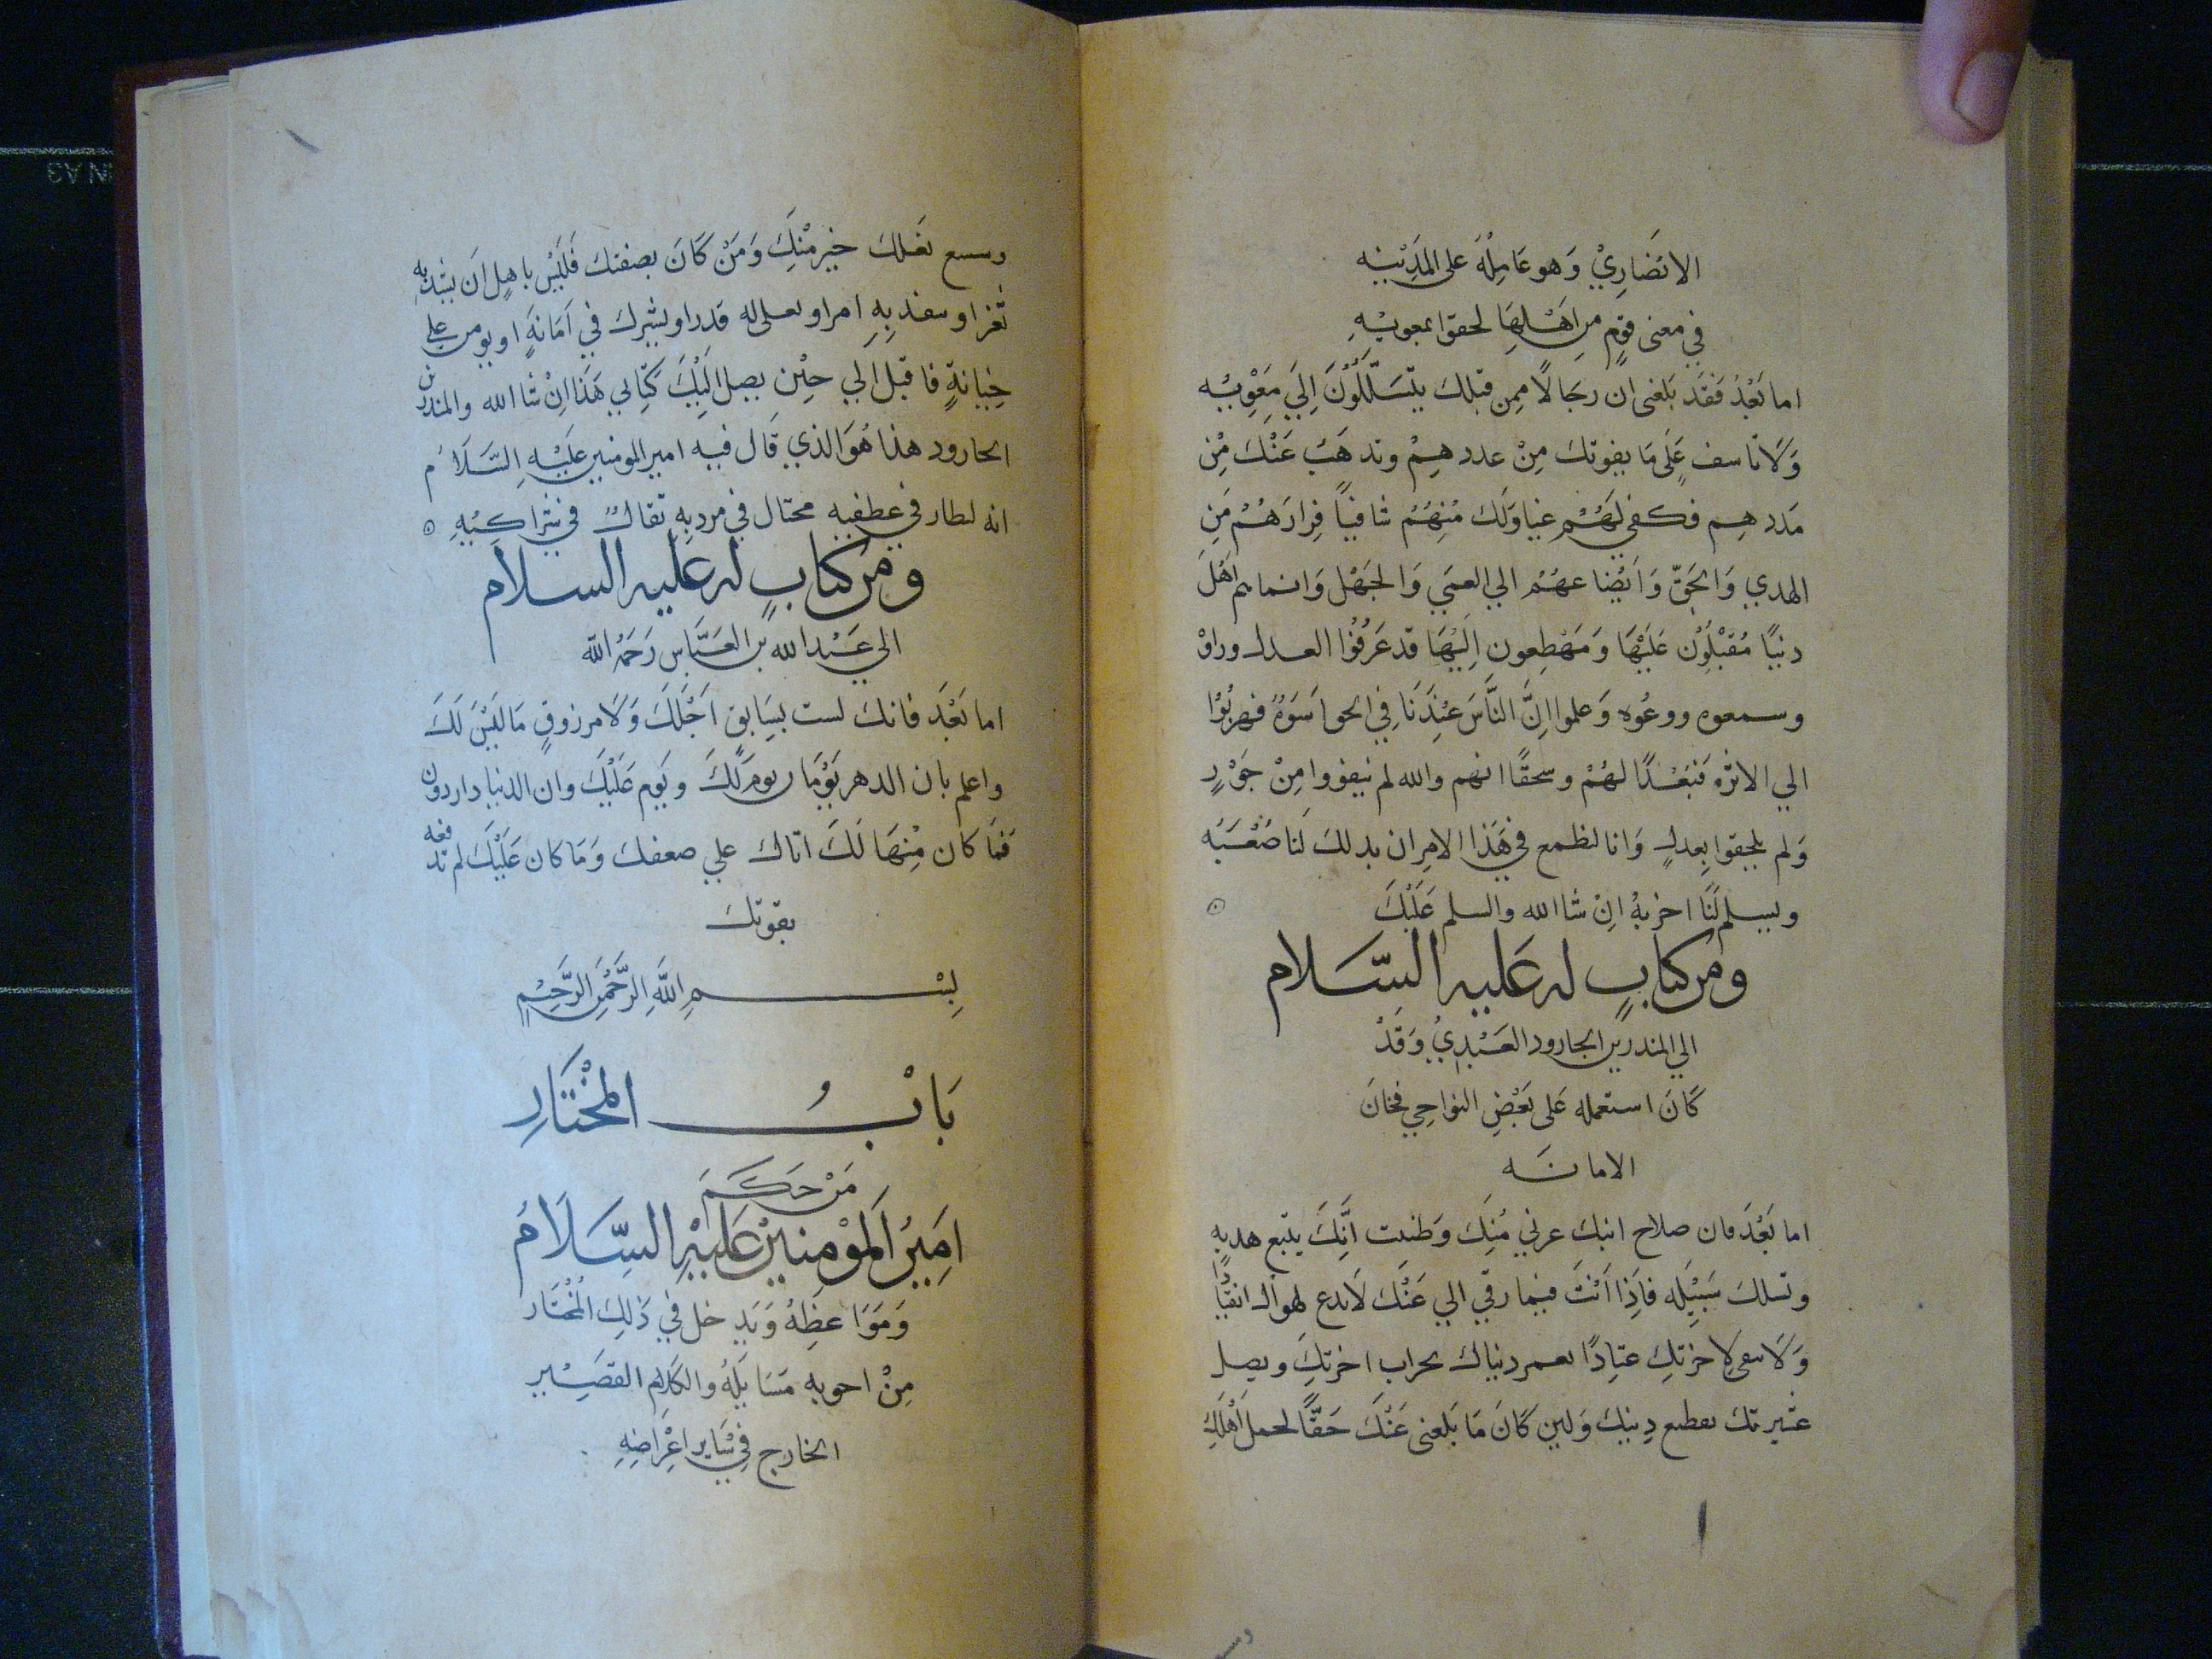 الانصاري وهو عامله على المدينه
في معنى قوم من اهلها لحقوا بمعويه
اما بعد فقد بلغنى ان رجالا ممن قبلك يتسللون الي معويه
ولا تاسف على ما يفوتك من عددهم وتدهب عنك من
مددهم فكفى لهم غيا ولك منهم شافيا فرارهم من
الهدي والحق وايضاعهم الي العمي والجهل وانما هم اهل
دنيا مقبلون عليها ومهطعون اليها قد عرفوا العدل وراوه
وسمعوه ووعوه وعلموا ان الناس عندنا في الحق اسوه فهربوا
الي الاثره فبعدا لهم وسحقا انهم والله لم ينفروا من جور
ولم يلحقوا بعدل وانا لنطمع في هذا الامر ان يدلل لنا صعبه
ويسهل لنا احزنه ان شا الله والسلم عليك
ومن كتاب له عليه السلام
الي المندر بن الجارود العبدي وقد
كان استعمله على بعض النواحي فخان
الامانه
اما بعد فان صلاح ابيك غرني منك وظننت انك يتبع هديه
وتسلك سبيله فاذا انت فيما رقي الي عنك لا تدع لهواك انقيادا
ولا تبقي لاخرتك عتادا تعمر دنياك بخراب اخرتك وتصل
عشيرتك بقطيع دينك ولين كان ما بلغنى عنك حقا لجمل اهلك
وشسع نعلك خير منك ومن كان بصفتك فليس باهل ان يسد به
ثغر او ينفد به امر او يعلى له قدر او يشرك في امانة او يومن علي
خيانة فاقبل الي حين يصل اليك كتابي هذا ان شا الله والمندر بن
الجارود هذا هو الذي قال فيه امير المومنين عليه السلام
انه لنظار في عطفيه مختال في برديه تفال في شراكيه
ومن كتاب له عليه السلام
الي عبد الله بن العباس رحمه الله
اما بعد فانك لست بسابق اجلك ولا مرزوق ما ليس لك
واعلم بان الدهر يومان يوم لك ويوم عليك وان الدنيا دار دول
فما كان منها لك اتاك علي ضعفك وما كان عليك لم تدفعه
بقوتك
بسم الله الرحمن الرحيم
باب المختار
من حكم
امير المومنين عليه السلام
ومواعظه ويدخل في ذلك المختار
من اجوبه مسايله والكلام القصير
الخارج في ساير اغراضه